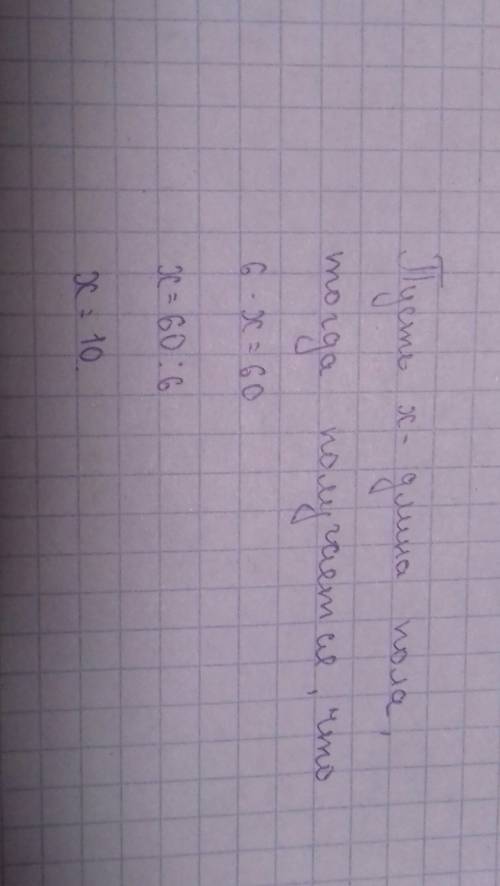 Пусть х - длина пола,
тогда получается, что
6 · х = 60
х = 60 : 6
х = 10.